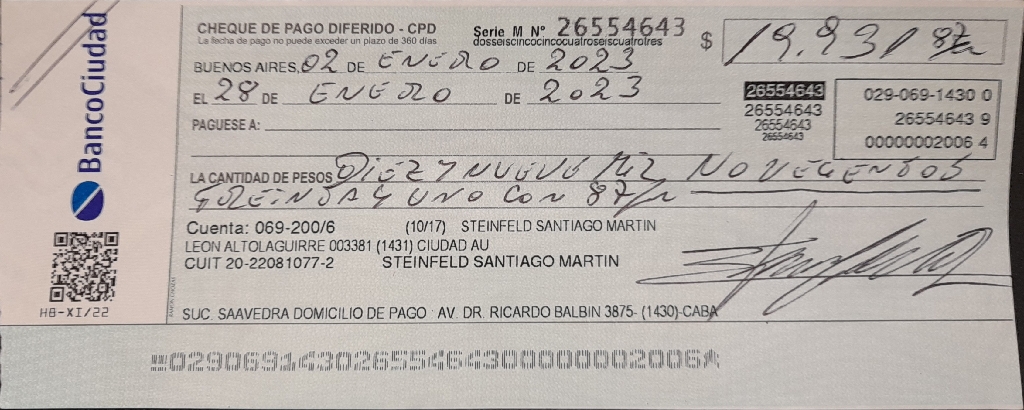 BancoCiudad
HB-XI/22
CHEQUE DE PAGO DIFERIDO - CPD
La fecha de pago no puede exceder un plazo de 360 días
Serie M Nº 26554643
dosseiscincocincocuatroseiscuatrotres
$ 19.931 87/
BUENOS AIRES, 02 DE ENERO DE 2023
EL 28 DE ENERO DE 2023
PAGUESE A:
26554643
26554643
26554643
26554643
029-069-1430 0
26554643 9
00000002006 4
LA CANTIDAD DE PESOS DIEZ Y NUEVE MIL NOVECENTOS
TREINTA Y UNO CON 87/
Cuenta: 069-200/6 (10/17) STEINFELD SANTIAGO MARTIN
LEON ALTOLAGUIRRE 003381 (1431) CIUDAD AU
CUIT 20-22081077-2 STEINFELD SANTIAGO MARTIN
SUC. SAAVEDRA DOMICILIO DE PAGO: AV. DR. RICARDO BALBIN 3875- (1430)-CABA
02906914302655464300000002006